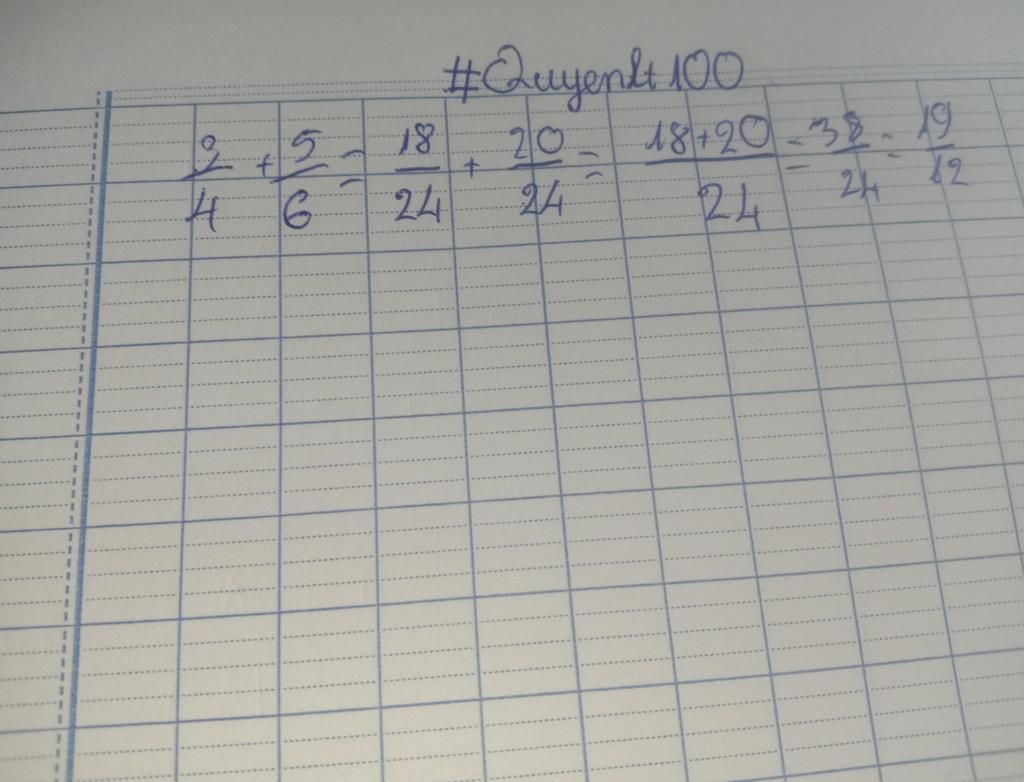 #Quyenlt100
3/4 + 5/6 = 18/24 + 20/24 = 18+20/24 = 38/24 = 19/12